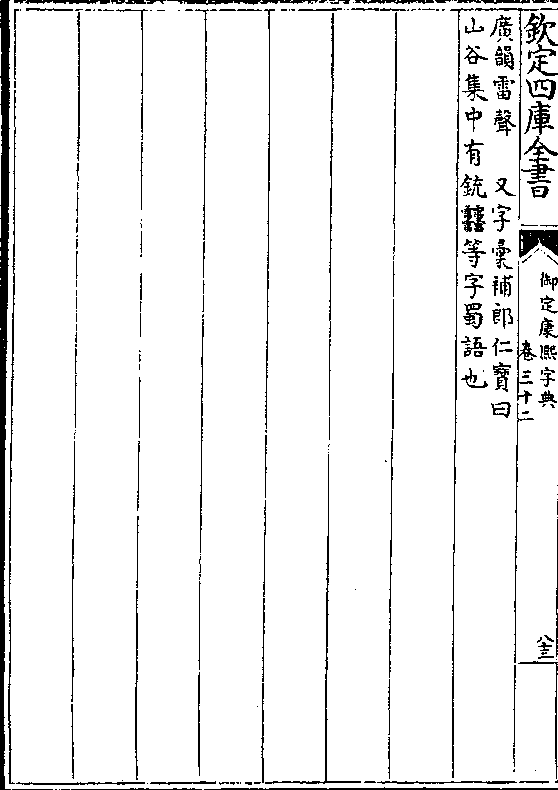 欽定四庫全書
御定康熙字典
卷三十二
八十三
廣韻雷聲 又字彙補郎仁寶曰
山谷集中有銃等字蜀語也